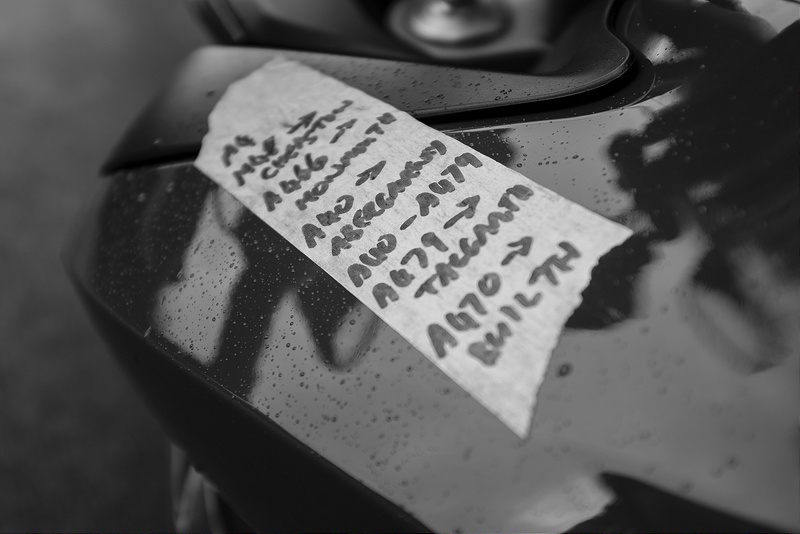 A4
M48 →
CHEPSTOW
A466 →
MONMOUTH
A40 →
ABERGAVENNY
A40 - A479
A479 →
TALGARTH
A470 →
BUILTH